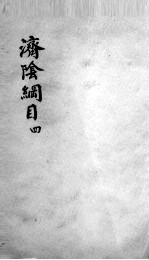 濟陰綱目四